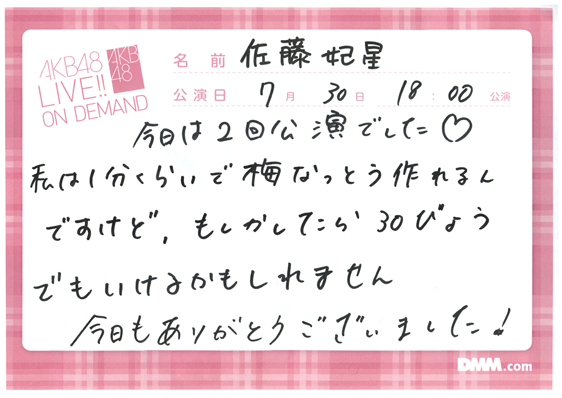 AKB48
LIVE!!
ON DEMAND
AKB
48
名前 佐藤妃星
公演日 7月 30日 18:00 公演
今日は2回公演でした♡
私は1分くらいで梅なっとう作れるん
ですけど、もしかしたら30びょう
でもいけるかもしれません
今日もありがとうございました!
DMM.com